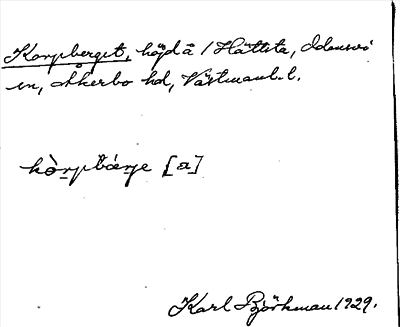 Korpberget, höjd å / Hättsta, Odensvi
sn, Åkerbo hd, Västmanl. l.
kòrpbærje [a]
Karl Björkman 1929.